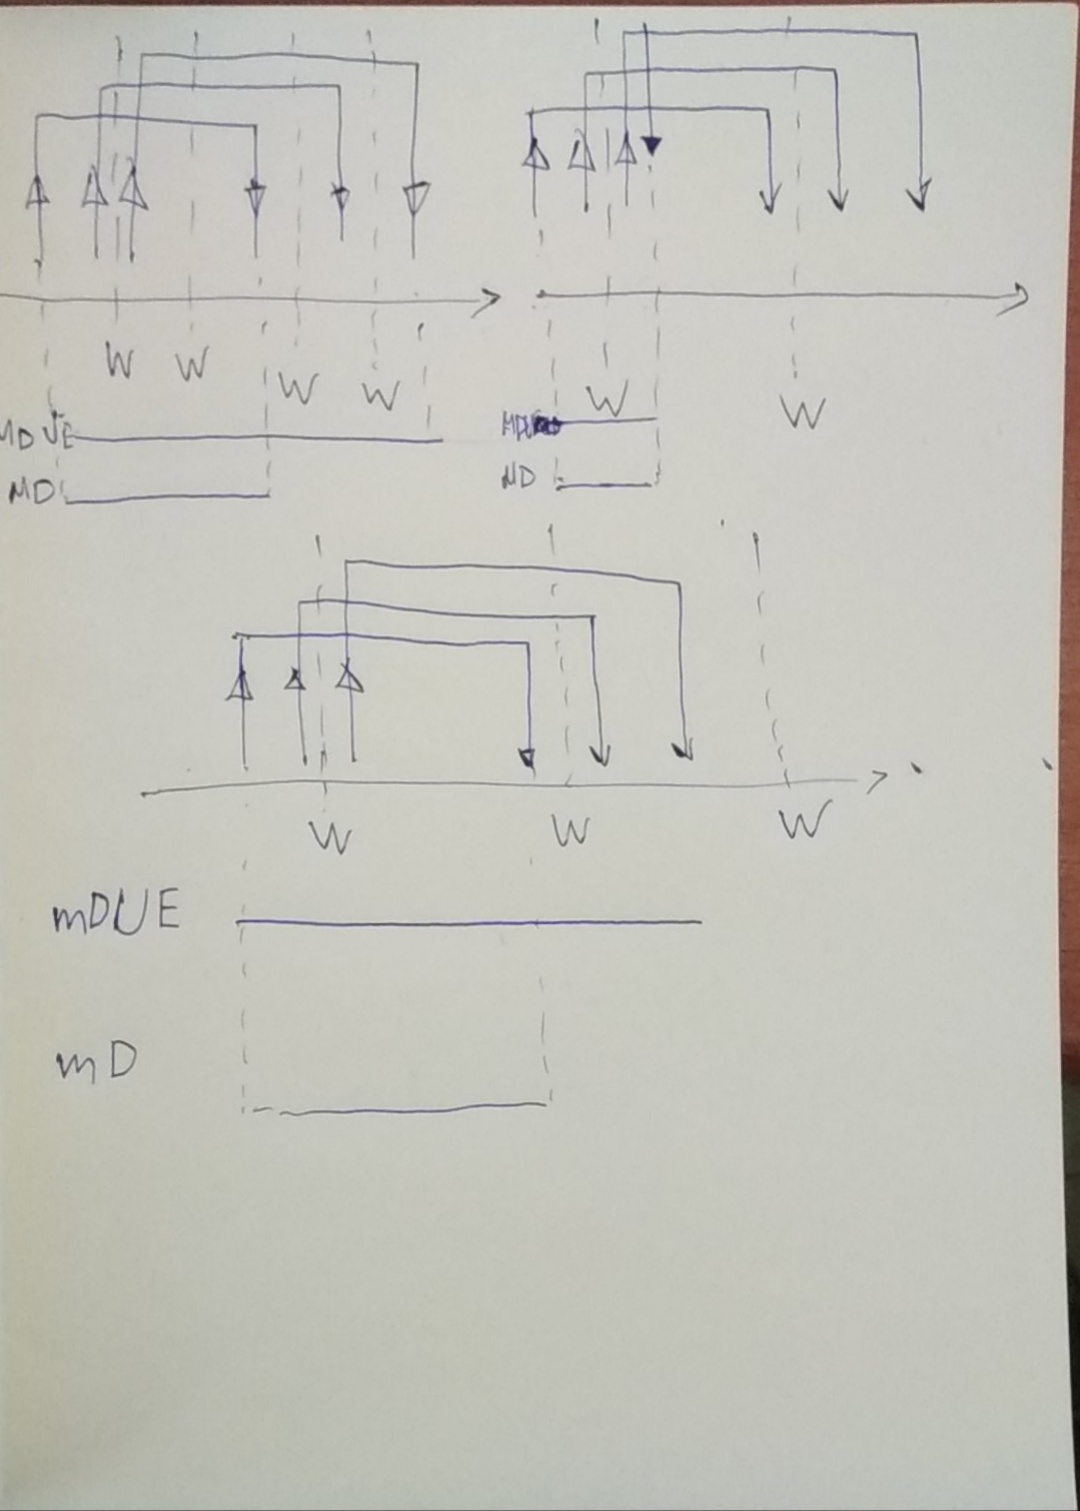 W W W W
MDUE
MD
W W
MD
W W W
mDUE
mD